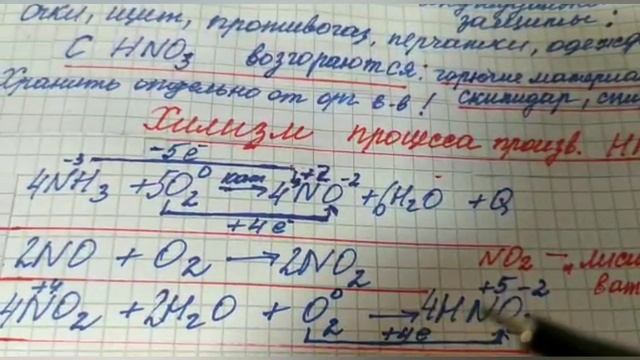 очки, щит, противогаз, перчатки, одежд
защиты:
С HNO3 возгораются: горючие материа
Хранить отдельно от орг. в-в! скипидар, спи
Химизм процесса произв. HN
-5e
-3 0 кат +2 -2
4NH3 + 5O2 → 4NO + 6H2O + Q
+4e
2NO + O2 → 2NO2
NO2 — „лиси
ват
+4 0 +5 -2
4NO2 + 2H2O + O2 → 4HNO
+4e